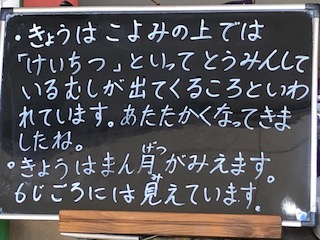 ・きょうは こよみの上では
「けいちつ」といって とうみんして
いるむしが出てくるころといわ
れています。あたたかくなってきま
したね。
・きょうはまん月がみえます。
げつ
6じごろには見えています。
み